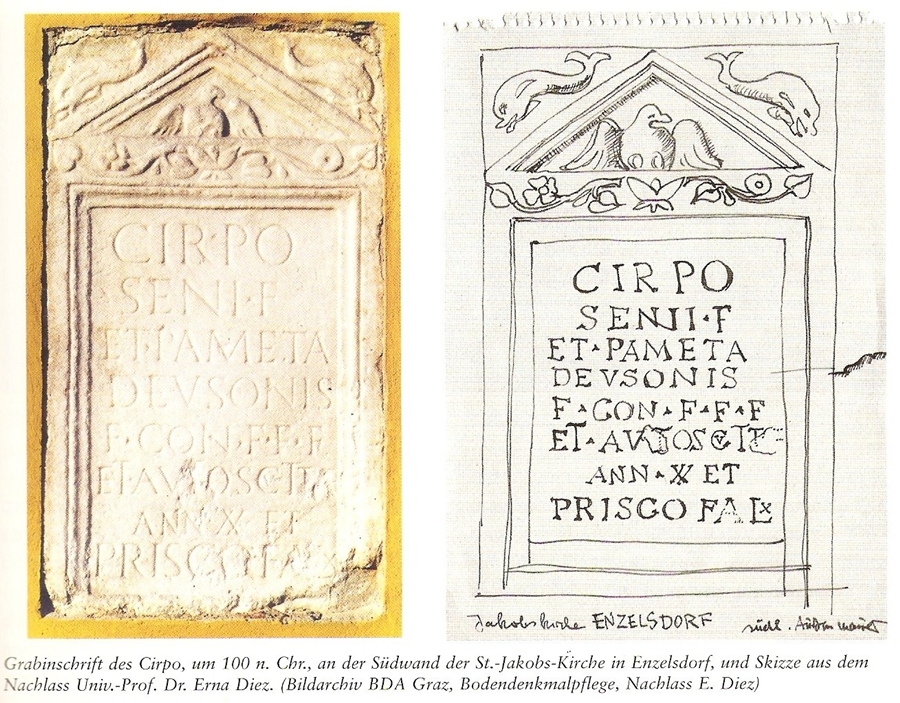 CIR·PO
SENI·F
ET·PAMETA
DEVSONIS
F·CON·F·F·F
ANN·X ET
PRISCO·FA
CIR PO
SENII·F
ET·PAMETA
DEVSONIS
F·CON·F·F·F
ET·
ANN·X ET
PRISCO FAL
Jakobskirche ENZELSDORF
südl. Außenmauer
Grabinschrift des Cirpo, um 100 n. Chr., an der Südwand der St.-Jakobs-Kirche in Enzelsdorf, und Skizze aus dem
Nachlass Univ.-Prof. Dr. Erna Diez. (Bildarchiv BDA Graz, Bodendenkmalpflege, Nachlass E. Diez)